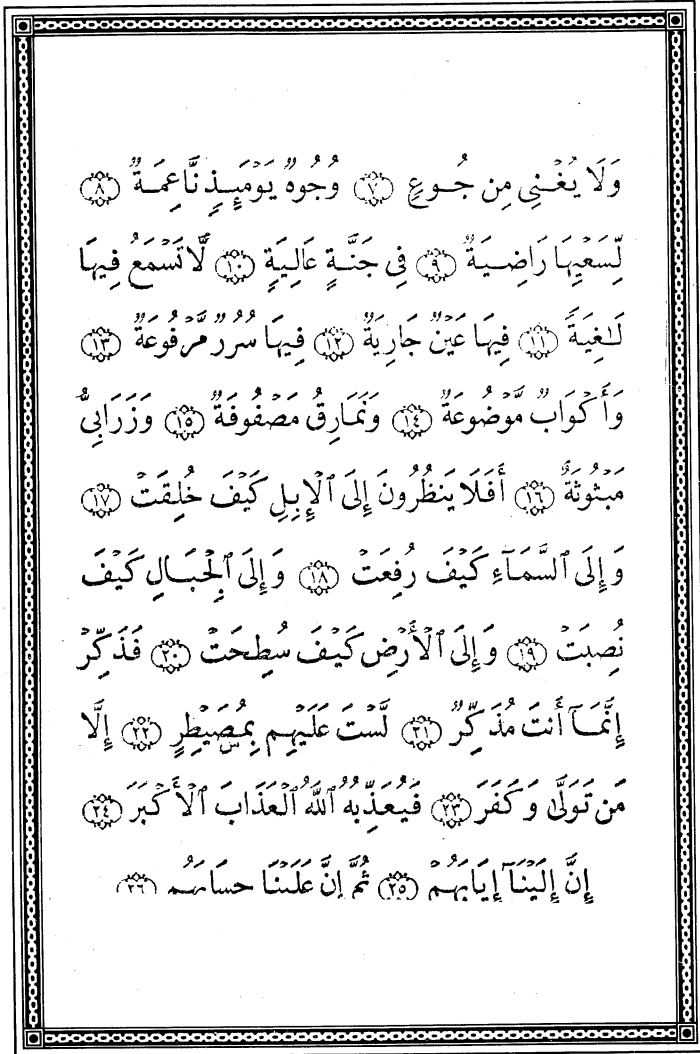 وَلَا يُغْنِى مِن جُوعٍ ﴿٧﴾ وُجُوهٌ يَوْمَئِذٍ نَّاعِمَةٌ ﴿٨﴾
لِّسَعْيِهَا رَاضِيَةٌ ﴿٩﴾ فِى جَنَّةٍ عَالِيَةٍ ﴿١٠﴾ لَّا تَسْمَعُ فِيهَا
لَـٰغِيَةً ﴿١١﴾ فِيهَا عَيْنٌ جَارِيَةٌ ﴿١٢﴾ فِيهَا سُرُرٌ مَّرْفُوعَةٌ ﴿١٣﴾
وَأَكْوَابٌ مَّوْضُوعَةٌ ﴿١٤﴾ وَنَمَارِقُ مَصْفُوفَةٌ ﴿١٥﴾ وَزَرَابِىُّ
مَبْثُوثَةٌ ﴿١٦﴾ أَفَلَا يَنظُرُونَ إِلَى ٱلْإِبِلِ كَيْفَ خُلِقَتْ ﴿١٧﴾
وَإِلَى ٱلسَّمَآءِ كَيْفَ رُفِعَتْ ﴿١٨﴾ وَإِلَى ٱلْجِبَالِ كَيْفَ
نُصِبَتْ ﴿١٩﴾ وَإِلَى ٱلْأَرْضِ كَيْفَ سُطِحَتْ ﴿٢٠﴾ فَذَكِّرْ
إِنَّمَآ أَنتَ مُذَكِّرٌ ﴿٢١﴾ لَّسْتَ عَلَيْهِم بِمُصَۜيْطِرٍ ﴿٢٢﴾ إِلَّا
مَن تَوَلَّىٰ وَكَفَرَ ﴿٢٣﴾ فَيُعَذِّبُهُ ٱللَّهُ ٱلْعَذَابَ ٱلْأَكْبَرَ ﴿٢٤﴾
إِنَّ إِلَيْنَآ إِيَابَهُمْ ﴿٢٥﴾ ثُمَّ إِنَّ عَلَيْنَا حِسَابَهُم ﴿٢٦﴾